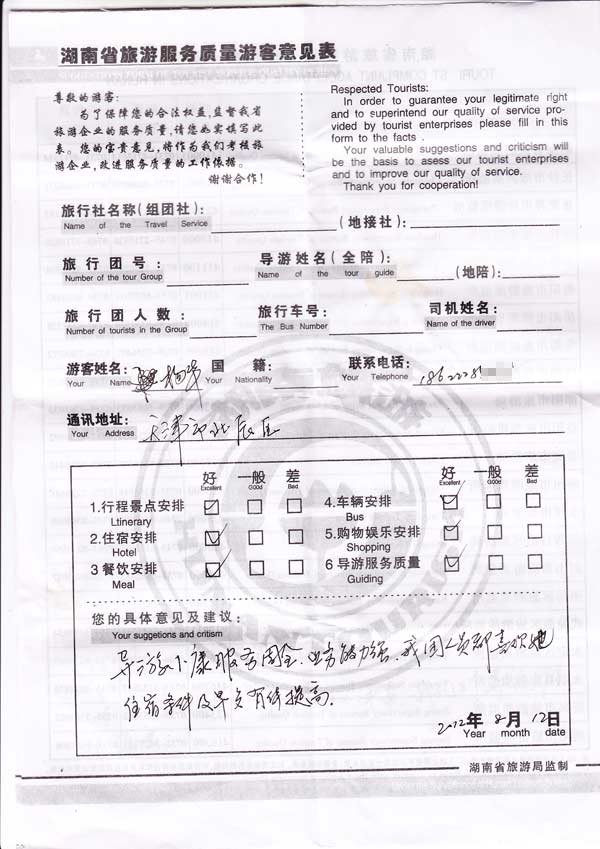 湖南省旅游服务质量游客意见表
尊敬的游客:
为了保障您的合法权益,监督我省
旅游企业的服务质量,请您如实填写此
表。您的宝贵意见,将作为我们考核旅
游企业,改进服务质量的工作依据。
谢谢合作!
Respected Tourists:
In order to guarantee your legitimate right
and to superintend our quality of service pro-
vided by tourist enterprises please fill in this
form to the facts .
Your valuable suggestions and criticism will
be the basis to asess our tourist enterprises
and to improve our quality of service.
Thank you for cooperation!
旅行社名称(组团社): (地接社):
Name of the Travel Service
旅行团号: 导游姓名(全陪): (地陪):
Number of the tour Group Name of the tour guide
旅行团人数: 旅行车号: 司机姓名:
Number of tourists in the Group The Bus Number Name of the driver
游客姓名: 国籍: 联系电话:
Your Name Your Nationality Your Telephone 1862228
通讯地址: 天津市北辰区
Your Address
好 一般 差 好 一般 差
Excellent Good Bad Excellent Good Bad
1.行程景点安排 4.车辆安排
Ltinerary Bus
2.住宿安排 5.购物娱乐安排
Hotel Shopping
3 餐饮安排 6 导游服务质量
Meal Guiding
您的具体意见及建议:
Your suggetions and critism
导游 服务周全,业务能力强,我团人员都喜欢她
住宿条件及早 有待提高.
2012年 8月 12日
Year month date
湖南省旅游局监制